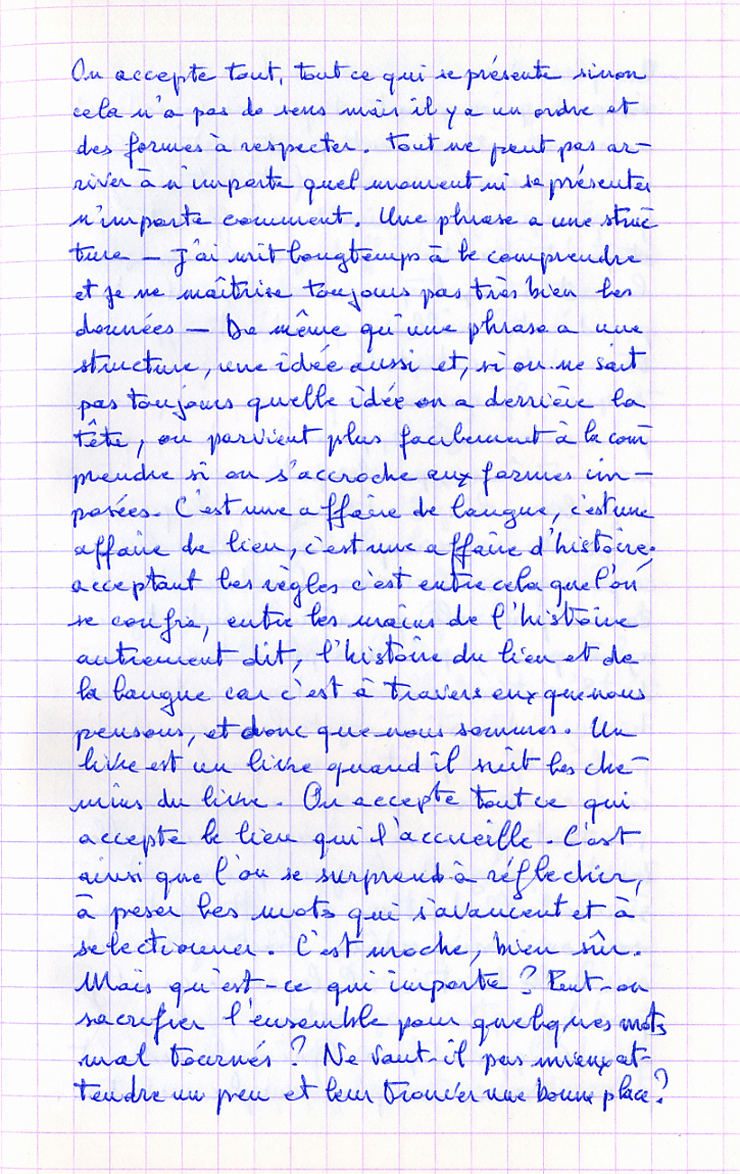 On accepte tout, tout ce qui se présente sinon
cela n'a pas de sens mais il y a un ordre et
des formes à respecter. Tout ne peut pas ar-
river à n'importe quel moment ni se présenter
n'importe comment. Une phrase a une struc-
ture — j'ai mit longtemps à le comprendre
et je ne maîtrise toujours pas très bien les
données — De même qu'une phrase a une
structure, une idée aussi et, si on ne sait
pas toujours quelle idée on a derrière la
tête, on parvient plus facilement à la com-
prendre si on s'accroche aux formes im-
posées. C'est une affaire de langue, c'est une
affaire de lieu, c'est une affaire d'histoire.
acceptant les règles c'est entre cela que l'on
se confie, entre les mains de l'histoire
autrement dit, l'histoire du lieu et de
la langue car c'est à travers eux que nous
pensons, et donc que nous sommes. Un
livre est un livre quand il suit les che-
mins du livre. On accepte tout ce qui
accepte le lieu qui l'accueille. C'est
ainsi que l'on se surprend à réflechir,
à peser les mots qui s'avancent et à
selectionner. C'est moche, bien sûr.
Mais qu'est-ce qui importe ? Peut-on
sacrifier l'ensemble pour quelques mots
mal tournés ? Ne vaut-il pas mieux at-
tendre un peu et leur trouver une bonne place ?